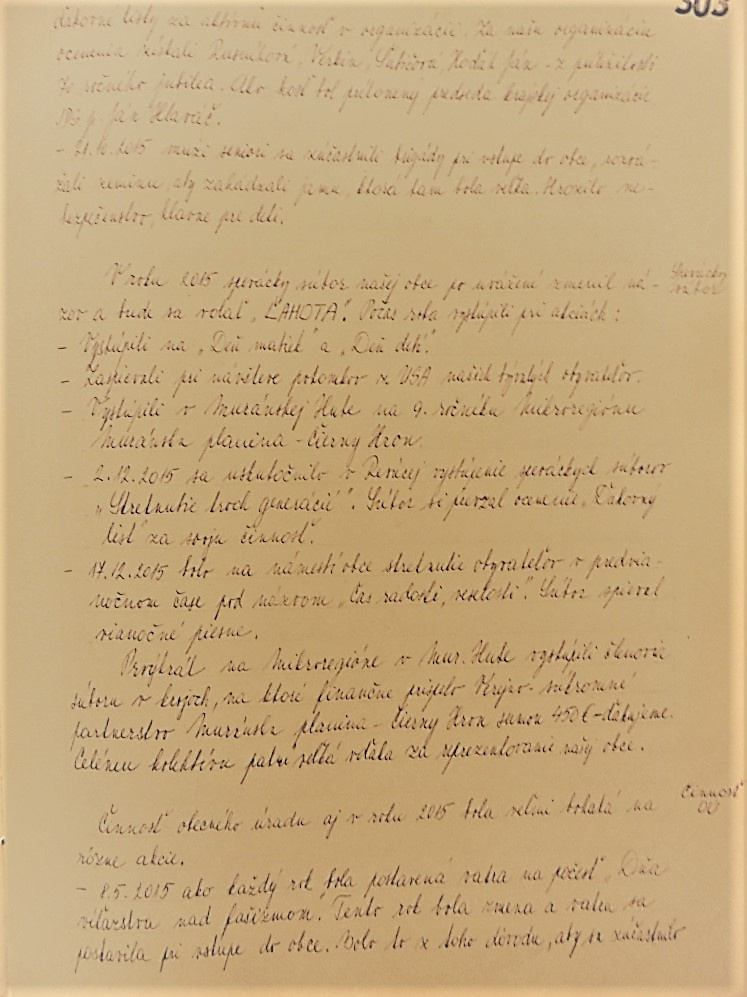 303
ďakovné listy za aktívnu činnosť v organizácii. Za našu organizáciu
ocenenia získali Rusnáková, Verbin, Hodák Ján - z príležitosti
70 ročného jubilea. Ako hosť bol prítomný predseda krajskej organizácie
p. Ján Hlaváč.
- 21.10.2015 muži seniori sa zúčastnili brigády pri vstupe do obce, rozvá-
žali zeminu, aby zahádzali jamu, ktorá tam bola veľká. Hrozilo ne-
bezpečenstvo, hlavne pre deti.
V roku 2015 spevácky súbor našej obce po uvážení zmenil ná-
zov a bude sa volať „ĽAHOTA“. Počas roka vystúpili pri akciách:
Spevácky
súbor
- Vystúpili na „Deň matiek“ a „Deň detí“.
- Zaspievali pri návšteve potomkov z USA našich bývalých obyvateľov.
- Vystúpili v Muránskej Hute na 9. ročníku Mikroregiónu
Muránska planina - Čierny Hron.
- 2.12.2015 sa uskutočnilo v Revúcej vystúpenie speváckych súborov
„Stretnutie troch generácií“. Súbor si prevzal ocenenie „Ďakovný
list“ za svoju činnosť.
- 17.12.2015 bolo na námestí obce stretnutie obyvateľov v predvia-
nočnom čase pod názvom „Čas radosti, veselosti“. Súbor spieval
vianočné piesne.
Prvýkrát na Mikroregióne v Mur. Hute vystúpili členovia
súboru v krojoch, na ktoré finančne prispelo Verejno-súkromné
partnerstvo Muránska planina - Čierny Hron sumou 450 € - ďakujeme.
Celému kolektívu patrí veľká vďaka za reprezentovanie našej obce.
Činnosť obecného úradu aj v roku 2015 bola veľmi bohatá na
rôzne akcie.
Činnosť
OÚ
- 8.5.2015 ako každý rok bola postavená vatra na počesť „Dňa
víťazstva nad fašizmom“. Tento rok bola zmena a vatra sa
postavila pri vstupe do obce. Bolo to z toho dôvodu, aby sa zúčastnilo